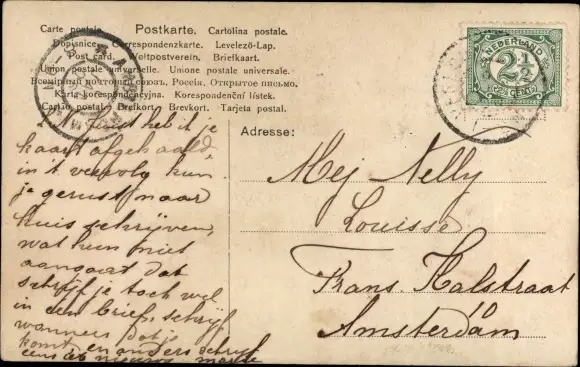 Carte postale. Postkarte. Cartolina postale.
Dopisnice. Correspondenzkarte. Levelező-Lap.
Post card. Weltpostverein. Briefkaart.
Union postale universelle. Unione postale universale.
Всемірный почтовый союзъ. Россія. Открытое письмо.
Karta korespondencyjna. Korespondenční lístek.
Cartão postal. Brefkort. Brevkort. Tarjeta postal.
NEDERLAND
2½
CENT
Adresse:
Mej Nelly
Louisse
Frans Halstraat
10
Amsterdam
heb ik je
kaart afgehaald,
in 't vervolg kun
je gerust naar
huis schrijven,
wat hun niet
aangaat dat
schrijf je toch wel
in een brief, schrijf
wanneer dat je
komt en anders schrijf
eens iets nieuws